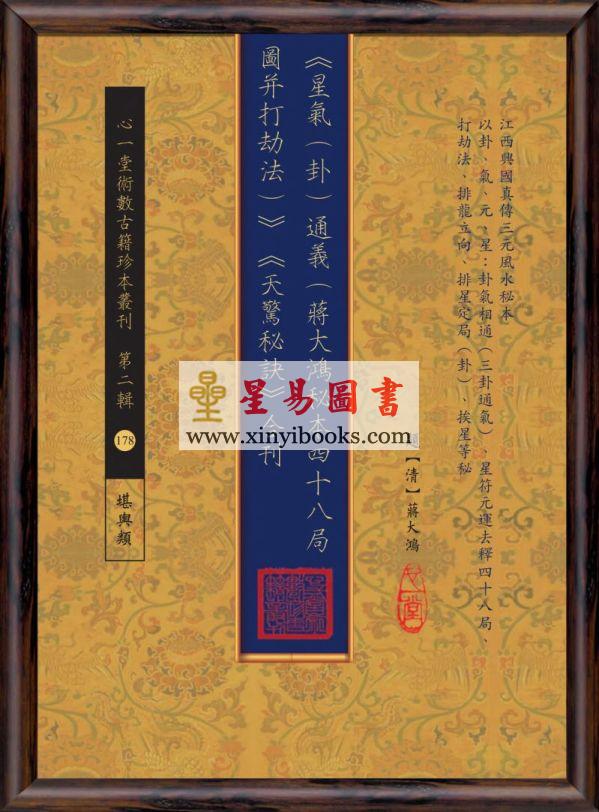 江西興國真傳三元風水秘本
以卦、氣、元、星：卦氣相通（三卦通氣）、星符元運去釋四十八局、
打劫法、排龍立向、排星定局（卦）、挨星等秘
【清】蔣大鴻
心一堂
《星氣（卦）通義（蔣大鴻秘本四十八局
圖并打劫法）》《天驚秘訣》合刊
心一堂術數古籍珍本叢刊 第二輯
178
堪輿類
星易圖書
www.xinyibooks.com